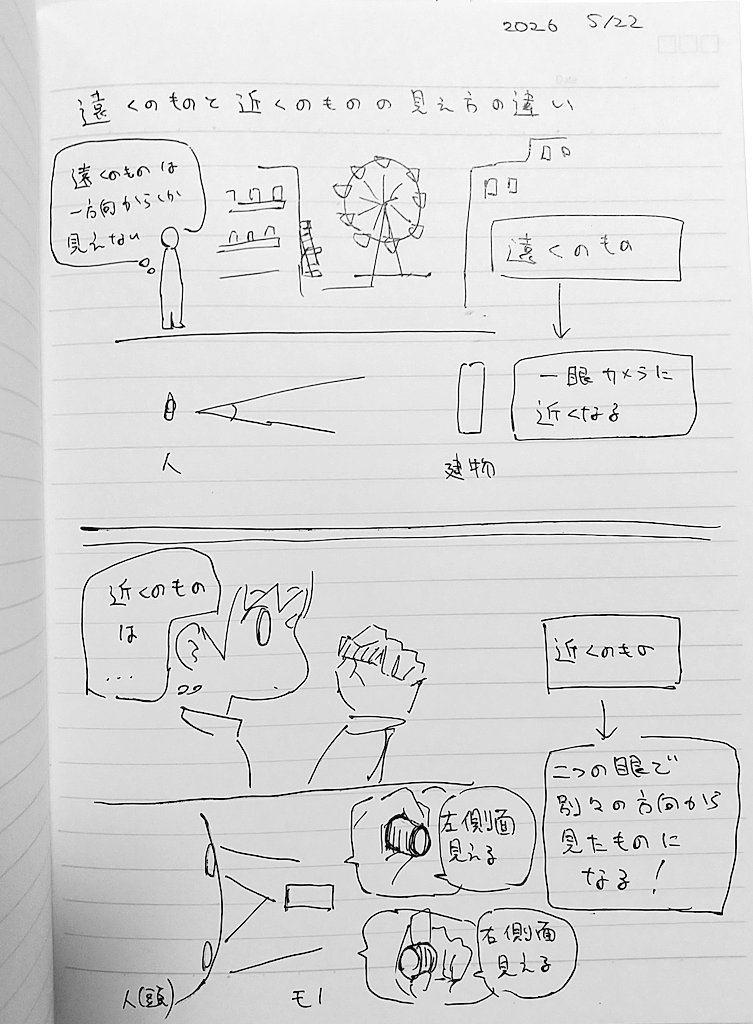 2026 5/22
Date
遠くのものと近くのものの見え方の違い
遠くのものは
一方向からしか
見えない
遠くのもの
一眼カメラに
近くなる
人
建物
近くのもの
は
...
近くのもの
二つの眼で
別々の方向から
見たものに
なる!
左側面
見える
右側面
見える
人(頭)
モノ